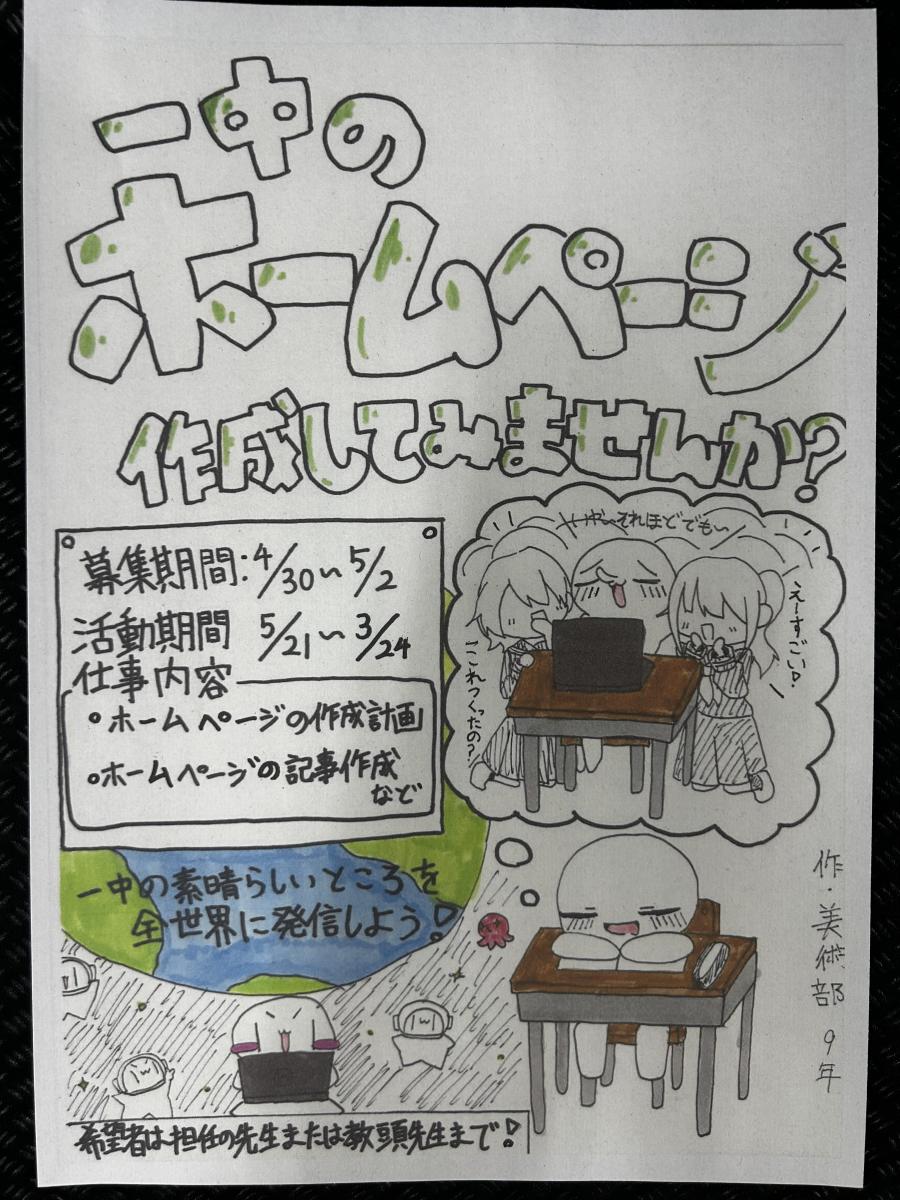 一中の
ホームページ
作成してみませんか?
募集期間:4/30~5/2
活動期間 5/21~3/24
仕事内容
・ホームページの作成計画
・ホームページの記事作成
など
いやーそれほどでも〜
えーすごい!
これつくったの?
一中の素晴らしいところを
全世界に発信しよう!
作・美術部 9年
希望者は担任の先生または教頭先生まで!